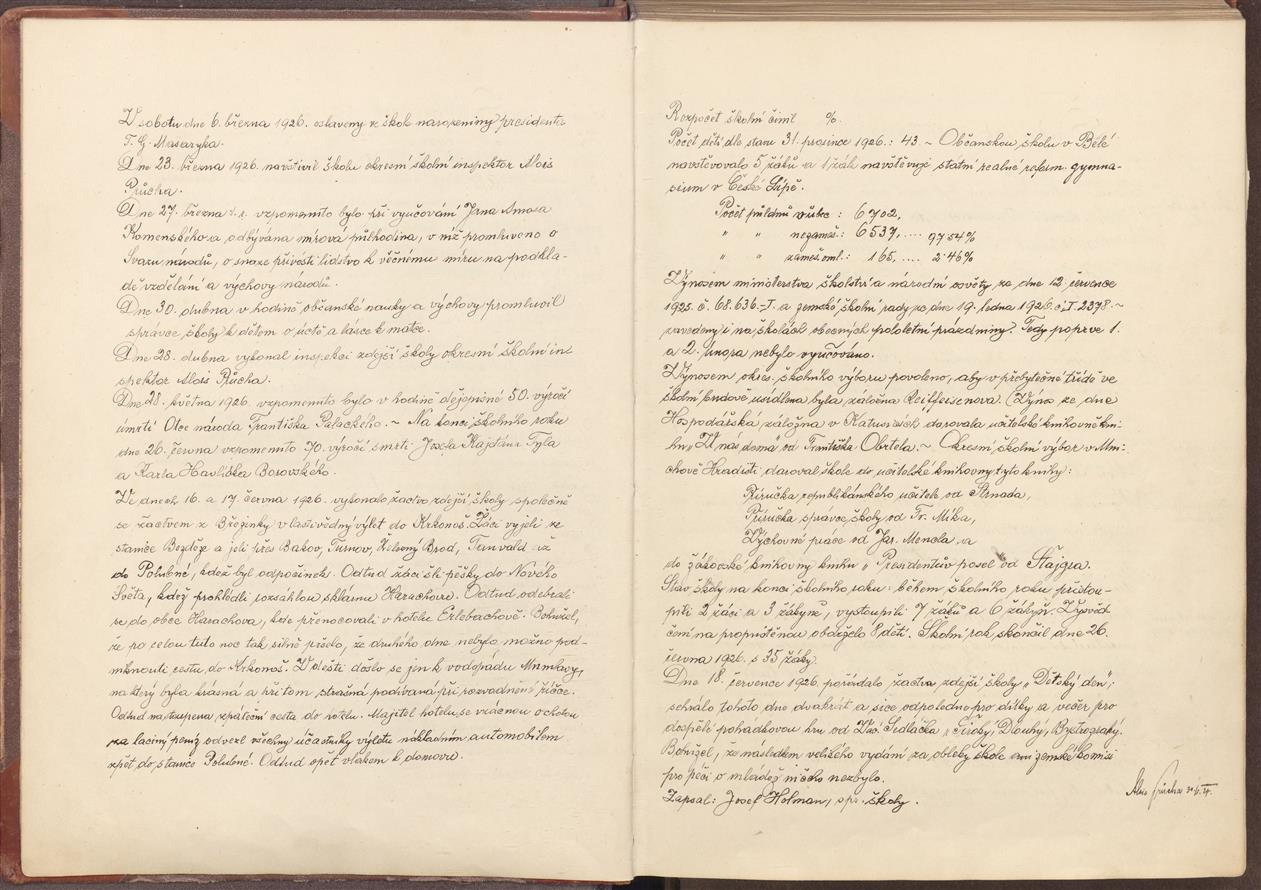 V sobotu dne 6. března 1926. oslaveny ve škole narozeniny presidenta
T. G. Masaryka.
Dne 23. března 1926. navštívil školu okresní školní inspektor Alois
Průcha.
Dne 27. března t.r. vzpomenuto bylo při vyučování Jana Amosa
Komenského a odbývána mírová půlhodina, v níž promluveno o
Svazu národů, o snaze přivésti lidstvo k věčnému míru na podkla-
dě vzdělání a výchovy národů.
Dne 30. dubna v hodině občanské nauky a výchovy promluvil
správce školy k dětem o úctě a lásce k matce.
Dne 28. dubna vykonal inspekci zdejší školy okresní školní in-
spektor Alois Průcha.
Dne 28. května 1926 vzpomenuto bylo v hodině dějepisné 50. výročí
úmrtí Otce národa Františka Palackého. ~ Na konci školního roku
dne 26. června vzpomenuto 70. výročí smrti Josefa Kajetána Tyla
a Karla Havlíčka Borovského.
Ve dnech 16. a 17. června 1926. vykonalo žactvo zdejší školy společně
se žactvem z Březinky vlastivědný výlet do Krkonoš. Žáci vyjeli ze
stanice Bezděze a jeli přes Bakov, Turnov, Železný Brod, Tanvald až
do Polubné, kdež byl odpočinek. Odtud žáci šli pěšky do Nového
Světa, kdež prohlédli rozsáhlou sklárnu Harachovu. Odtud odebrali
se do obce Harachova, kde přenocovali v hotelu Erlebachově. Bohužel,
že po celou tuto noc tak silně pršelo, že druhého dne nebylo možno pod-
niknouti cestu do Krkonoš. V dešti došlo se jen k vodopádu Mumlavy,
na který byla krásná a při tom strašná podívaná při rozvodněné říčce.
Odtud nastoupena zpáteční cesta do hotelu. Majitel hotelu se vzácnou ochotou
za laciný peníz odvezl všechny účastníky výletu nákladním automobilem
zpět do stanice Polubné. Odtud opět vlakem k domovu.
Rozpočet školní činil %.
Počet dětí dle stavu 31. prosince 1926.: 43. ~ Občanskou školu v Bělé
navštěvovalo 5 žáků a 1 žák navštěvuje státní reálné reform. gymna-
sium v České Lípě.
Počet půldnů vůbec : 6702,
" " nezameš.: 6537, .... 97.54%
" " zameš. oml.: 165, .... 2.46%
Výnosem ministerstva školství a národní osvěty ze dne 12. července
1925. č. 68.636.-I. a zemské školní rady ze dne 19. ledna 1926. č. I. 2378. ~
zavedeny i na školách obecných pololetní prázdniny. Tedy poprve 1.
a 2. února nebylo vyučováno.
Výnosem okres. školního výboru povoleno, aby v přebytečné třídě ve
školní budově usídlena byla záložna Reiffeisenova. (Výnos ze dne
Hospodářská záložna v Katusicích darovala učitelské knihovně kni-
hu „U nás doma" od Františka Obrtela. ~ Okresní školní výbor v Mni-
chově Hradišti daroval škole do učitelské knihovny tyto knihy:
Příručka republikánského učitele od Strnada,
Příručka správce školy od Fr. Mika,
Výchovné práce od Jar. Mencla, a
do žákovské knihovny knihu „Presidentův posel" od Štajgra.
Stav školy na konci školního roku: během školního roku přistou-
pili 2 žáci a 3 žákyně, vystoupili 7 žáků a 6 žákyň. Vysvěd-
čení na propuštěnou obdrželo 8 dětí. Školní rok skončil dne 26.
června 1926. s 35 žáky.
Dne 18. července 1926. pořádalo žactvo zdejší školy „Dětský den",
sehrálo tohoto dne dvakrát a sice odpoledne pro dítky a večer pro
dospělé pohádkovou hru od Sedláčka „Široký, Dlouhý, Bystrozraký.
Bohužel, že následkem velikého vydání za obleky škole ani zemské komisi
pro péči o mládež ničeho nezbylo.
Zapsal: Josef Holman, spr. školy.
Alois Průcha